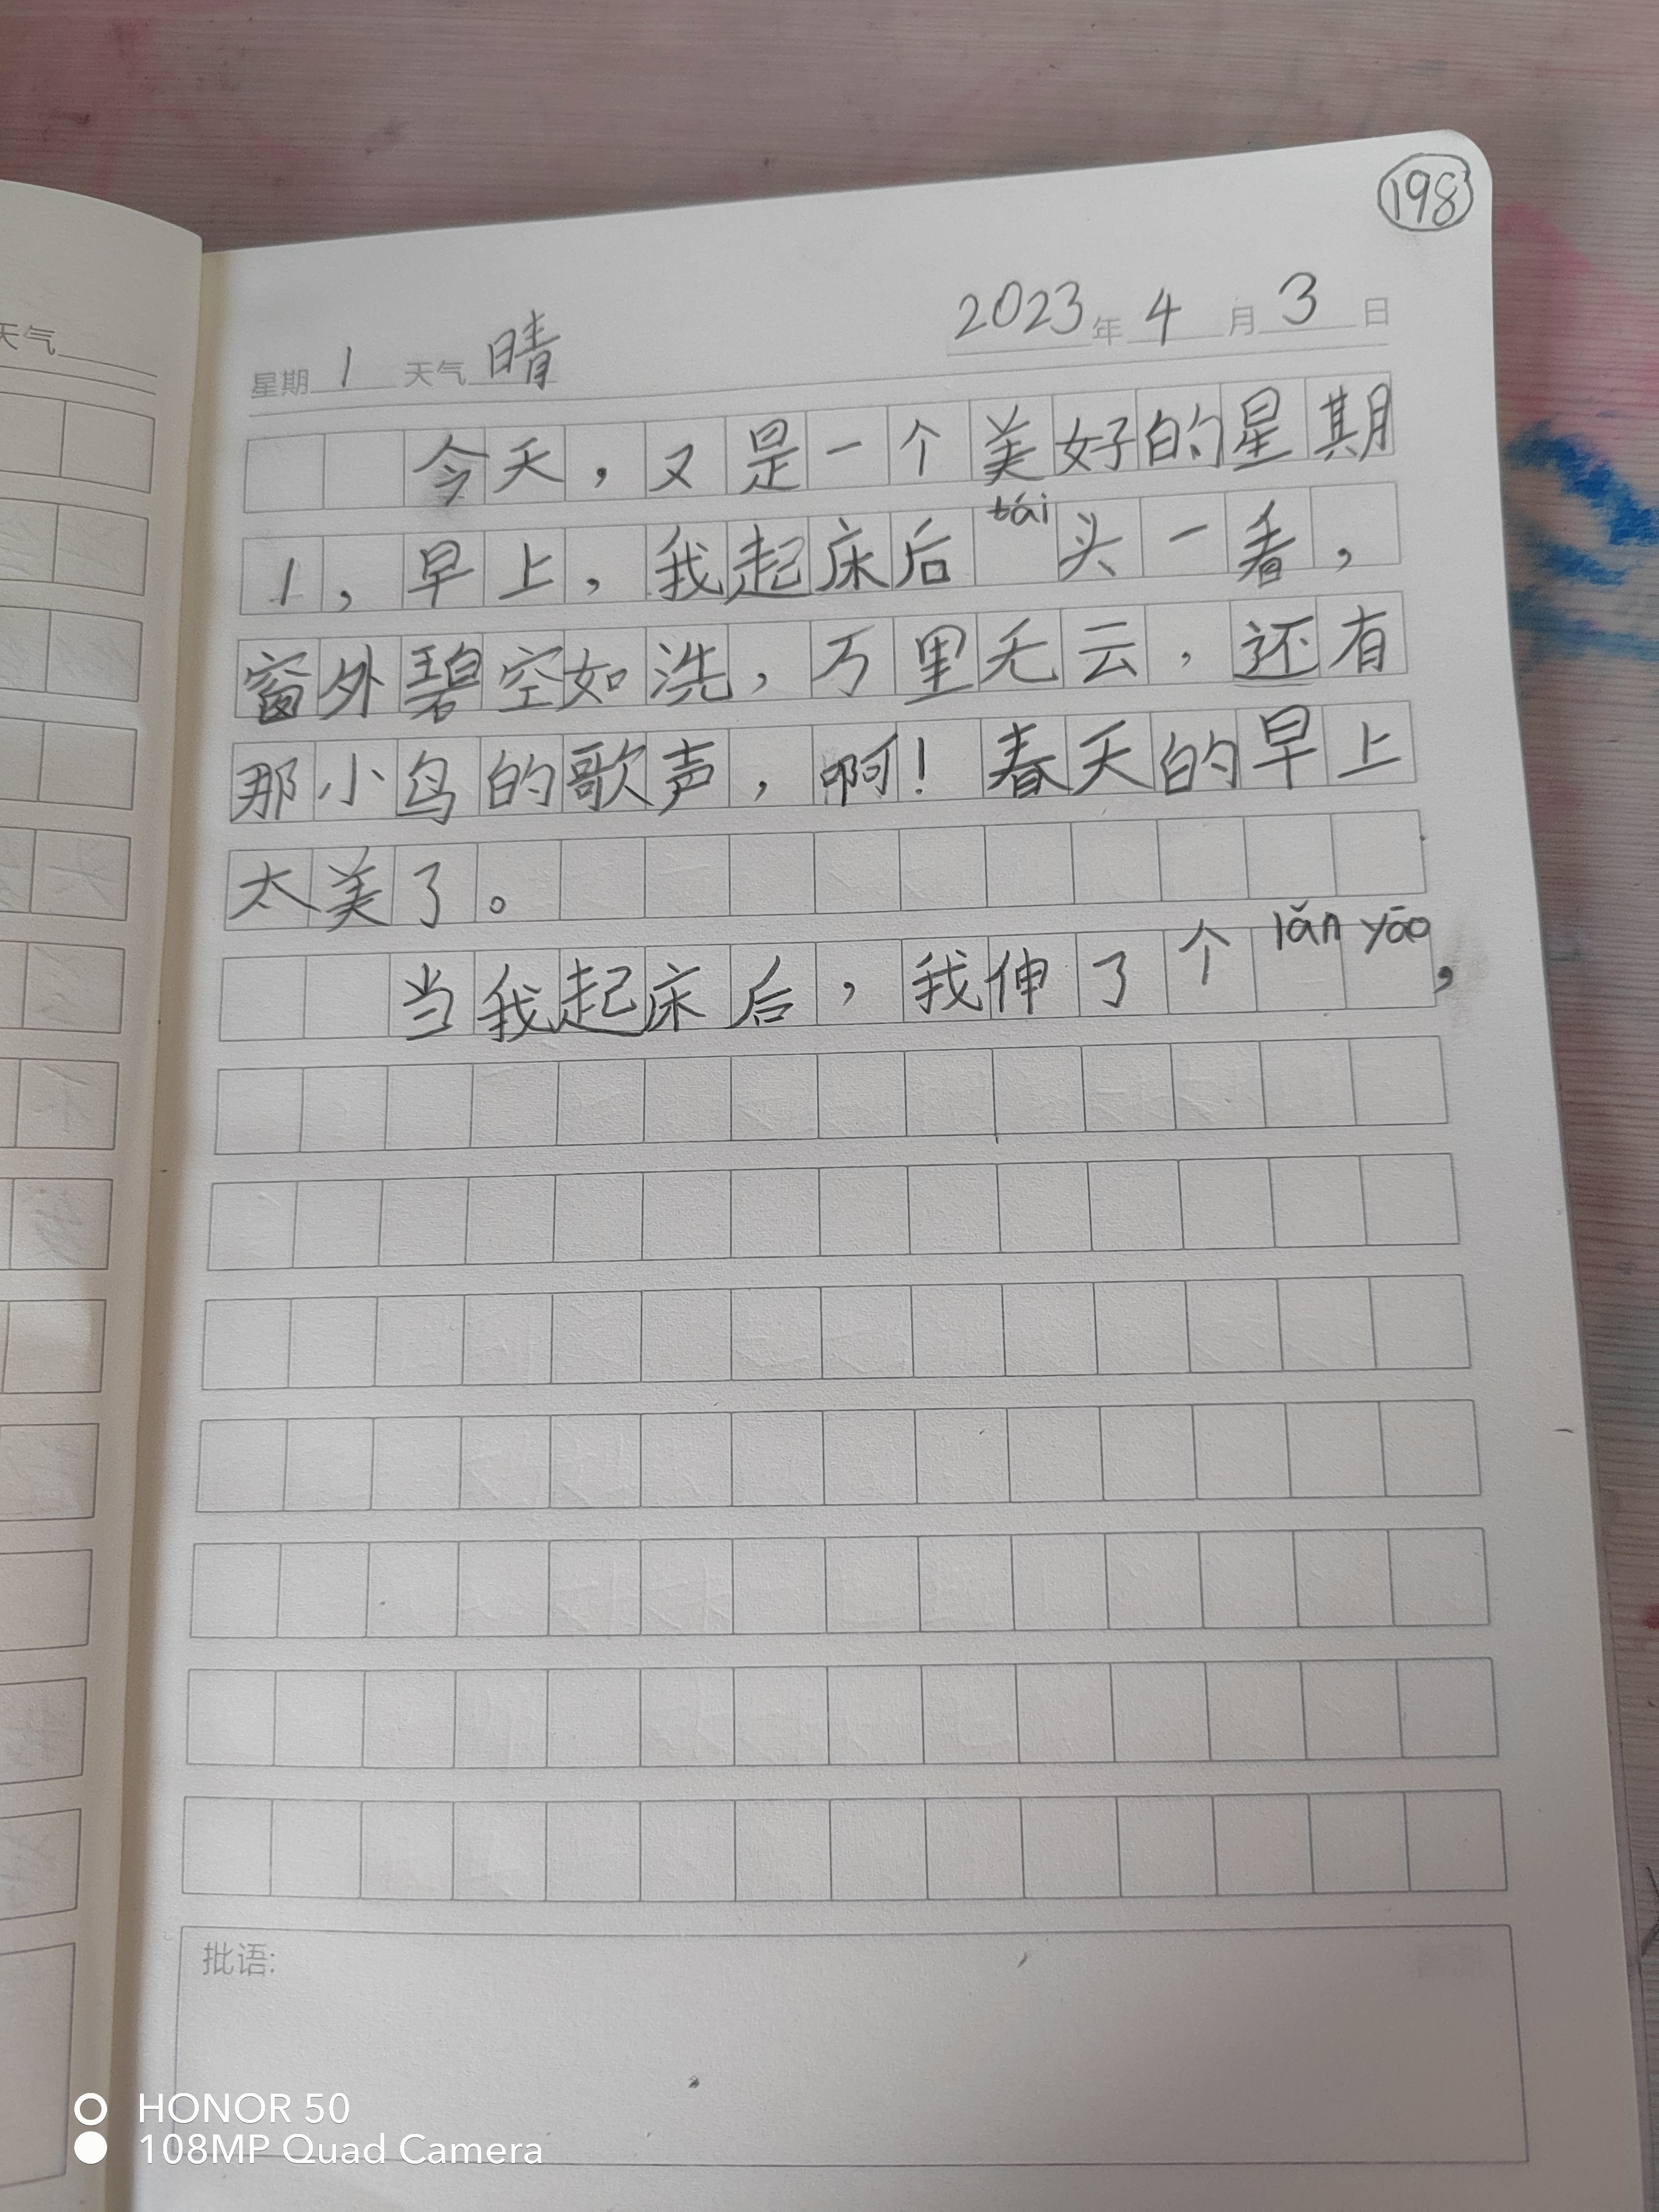 198
2023年4月3日
星期1 天气晴
天气
今天,又是一个美好的星期
1,早上,我起床后tái头一看,
窗外碧空如洗,万里无云,还有
那小鸟的歌声,啊!春天的早上
太美了。
当我起床后,我伸了个lǎn yāo,
批语:
HONOR 50
108MP Quad Camera